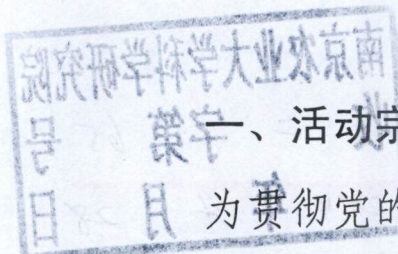 南京农业大学科学研究院
收 字第 号
年 月 日
一、活动宗
为贯彻党的